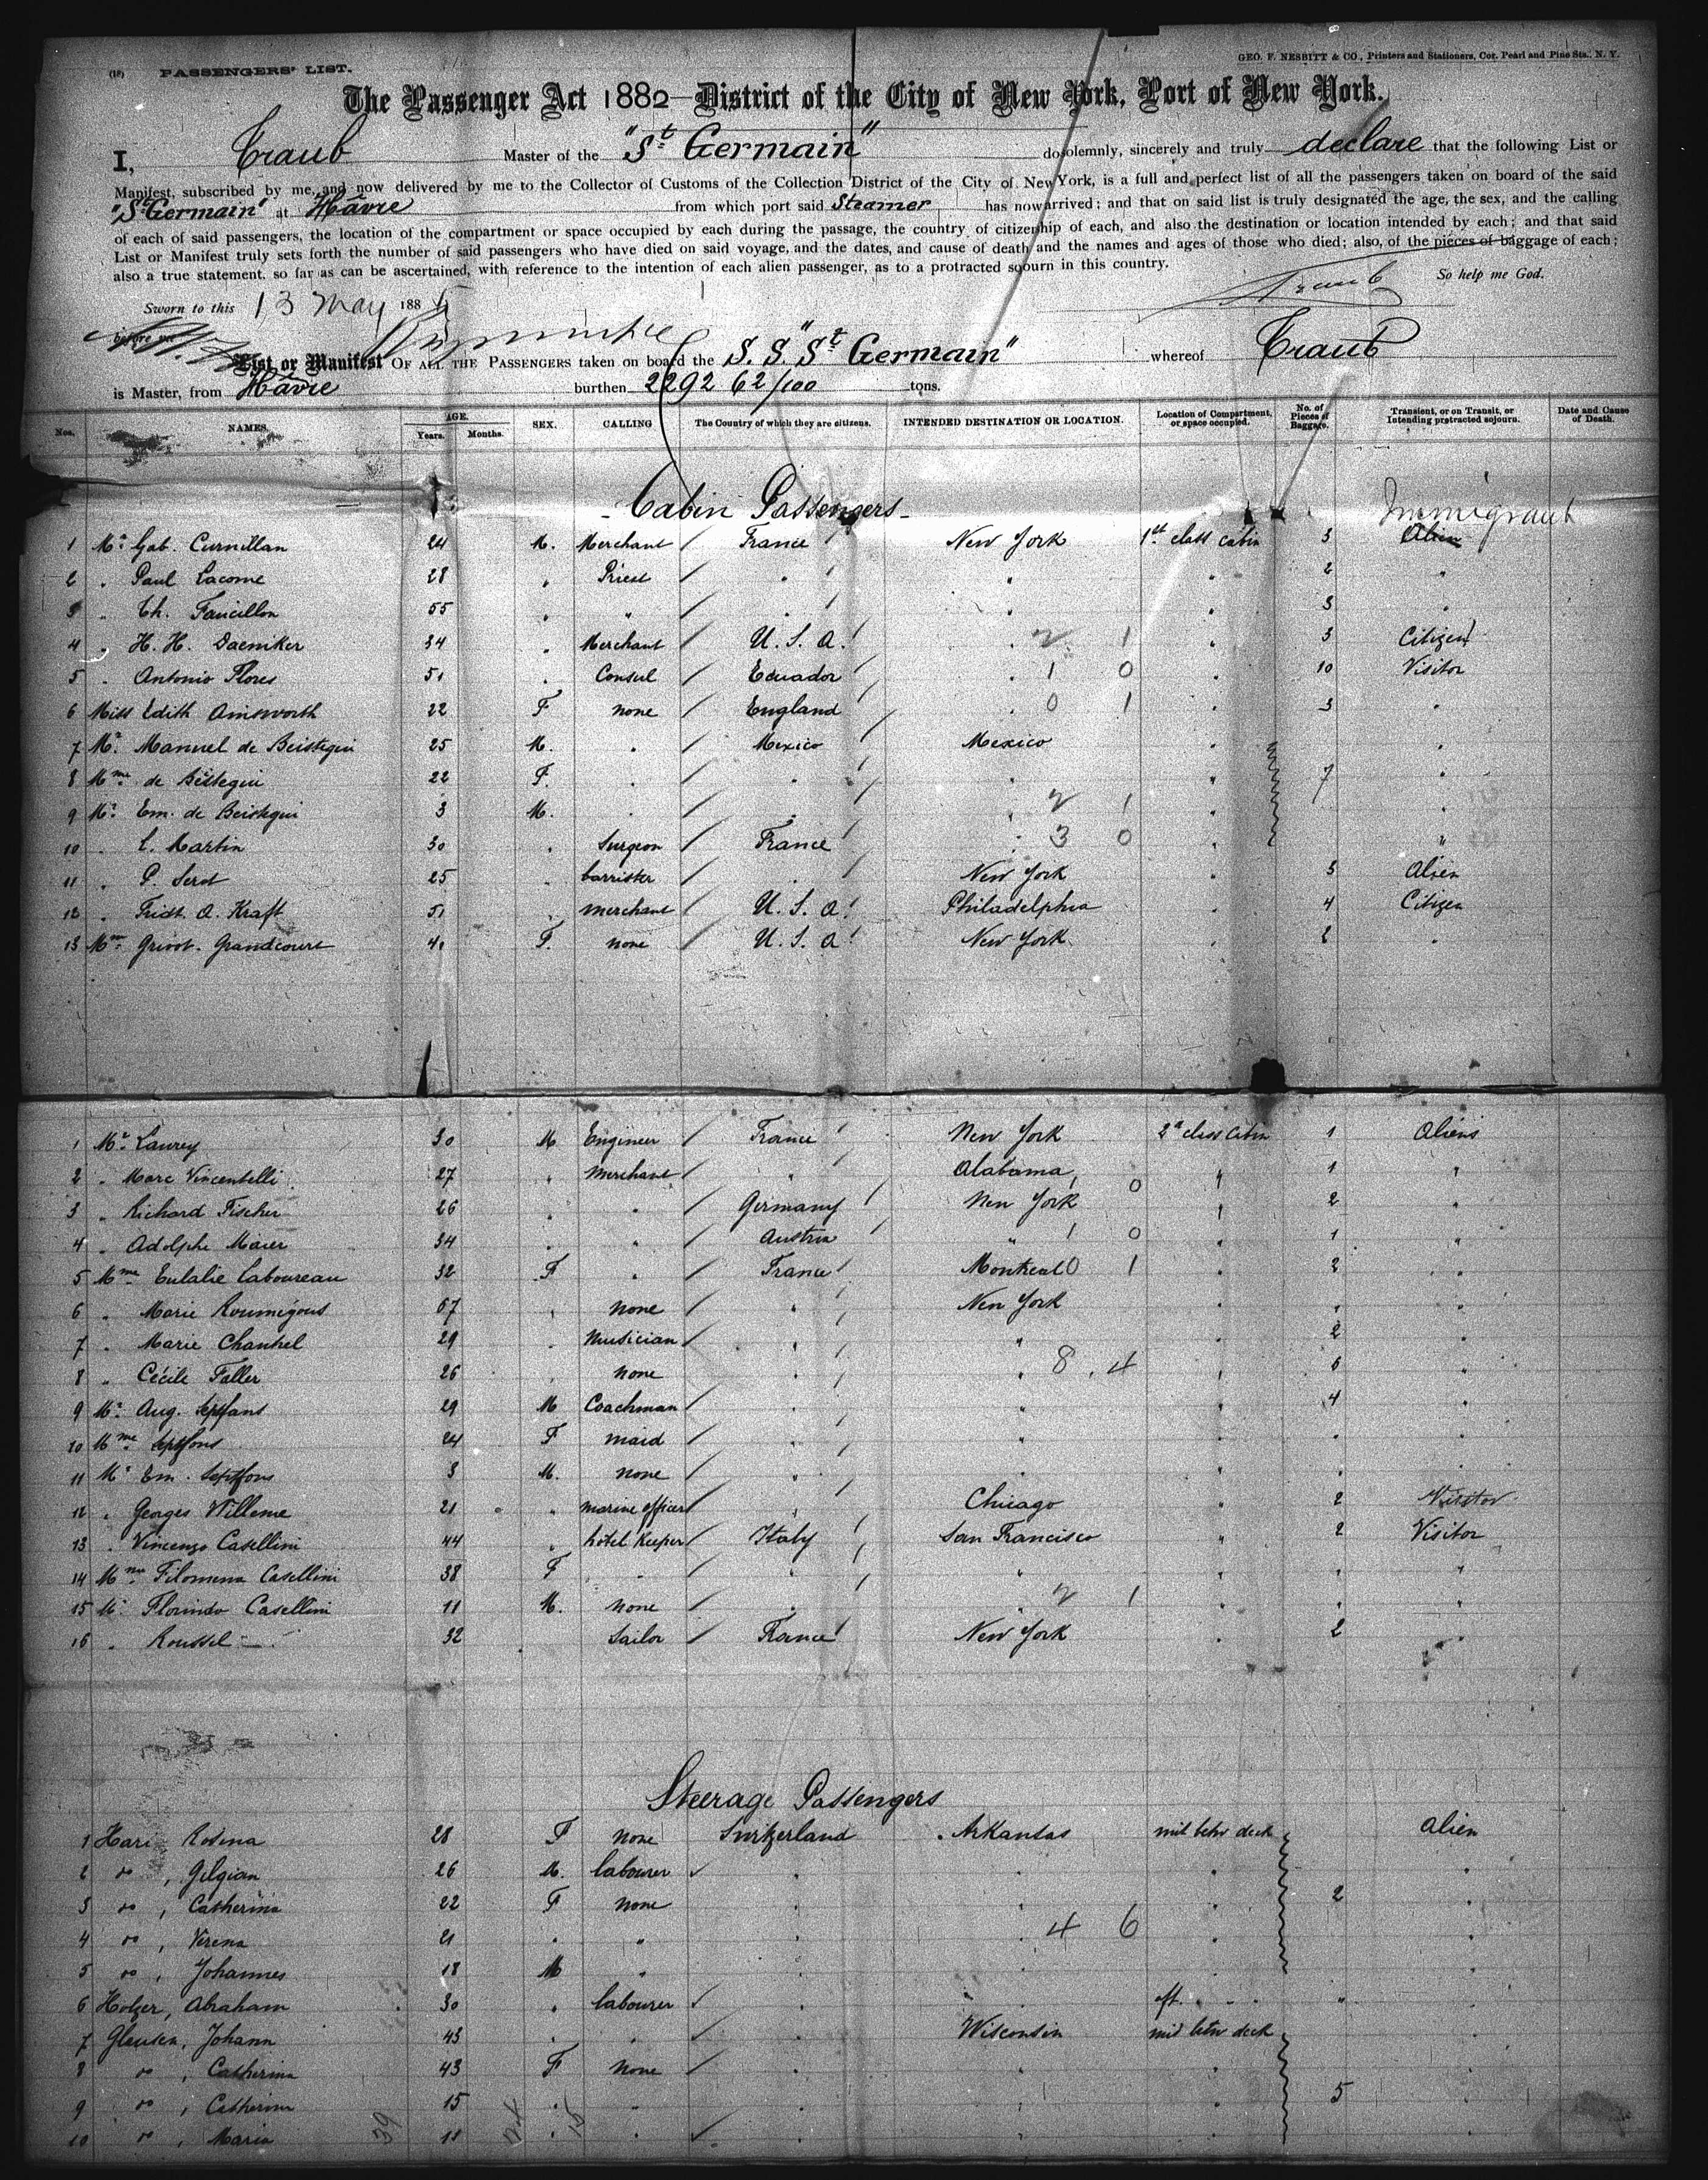 (18) PASSENGERS' LIST.
GEO. F. NESBITT & CO., Printers and Stationers, Cor. Pearl and Pine Sts., N. Y.
The Passenger Act 1882—District of the City of New York, Port of New York.
I, Traub Master of the "St Germain" do solemnly, sincerely and truly declare that the following List or
Manifest, subscribed by me, and now delivered by me to the Collector of Customs of the Collection District of the City of New York, is a full and perfect list of all the passengers taken on board of the said
"St Germain" at Hâvre from which port said Steamer has now arrived; and that on said list is truly designated the age, the sex, and the calling
of each of said passengers, the location of the compartment or space occupied by each during the passage, the country of citizenship of each, and also the destination or location intended by each; and that said
List or Manifest truly sets forth the number of said passengers who have died on said voyage, and the dates, and cause of death and the names and ages of those who died; also, of the pieces of baggage of each;
also a true statement, so far as can be ascertained, with reference to the intention of each alien passenger, as to a protracted sojourn in this country.
Traub So help me God.
Sworn to this 13 May 1885
before me
List or Manifest OF ALL THE PASSENGERS taken on board the S. S. "St Germain" whereof Traub
is Master, from Hâvre burthen 2292 62/100 tons.
Nos. NAMES. AGE. Years. Months. SEX. CALLING The Country of which they are citizens. INTENDED DESTINATION OR LOCATION. Location of Compartment, or space occupied. No. of Pieces of Baggage. Transient, or on Transit, or Intending protracted sojourn. Date and Cause of Death.
Cabin Passengers
Immigrant
1 Mr Gab. Curnillan 24 M. Merchant France New York 1st class cabin 3 Alien
2 " Paul Lacome 28 " Priest " " " 2 "
3 " Ch. Faucillon 55 " " " " " 3 "
4 " H. H. Daeniker 34 " Merchant U. S. A. " 2 1 " 3 Citizen
5 " Antonio Flores 51 " Consul Ecuador " 1 0 " 10 Visitor
6 Miss Edith Ainsworth 22 F none England " 0 1 " 3 "
7 Mr Manuel de Beistegui 25 M. " Mexico Mexico " "
8 Mme de Beistegui 22 F. " " " " 7 "
9 Mr Em. de Beistegui 3 M. " " " 2 1 " "
10 " L. Martin 30 " Surgeon France " 3 0 " "
11 " P. Serot 25 " barrister " New York " 3 Alien
12 " Fridt. A. Kraft 51 " merchant U. S. A. Philadelphia " 4 Citizen
13 Mme Grivot-Grandcourt 41 F. none U. S. A. New York " 2 "
1 Mr Laurey 30 M Engineer France New York 2d class Cabin 1 Aliens
2 " Marc Vincentelli 27 " Merchant " Alabama 1 0 " 1 "
3 " Richard Fischer 26 " " Germany New York " 2 "
4 " Adolphe Maier 34 " " Austria " 1 0 " 1 "
5 Mme Eulalie Laboureau 32 F " France Montreal 0 1 " 2 "
6 " Marie Roumégous 67 " none " New York " " "
7 " Marie Chantel 29 " musician " " " 2 "
8 " Cécile Faller 26 " none " " 8 . 4 " 6 "
9 Mr Aug. Septfons 29 M Coachman " " " 4 "
10 Mme Septfons 24 F maid " " " " "
11 Mr Em. Septfons 3 M. none " " " " "
12 " Georges Willeme 21 " marine officer " Chicago " 2 Visitor
13 " Vincenzo Casellini 44 " hotel Keeper Italy San Francisco " 2 Visitor
14 Mme Filomena Casellini 38 F " " " " " "
15 Mr Florindo Casellini 11 M. none " " 2 1 " " "
16 " Roussel 32 Sailor France New York " 2 "
Steerage Passengers
1 Hari Rosina 28 F none Switzerland Arkansas mid betw deck Alien
2 do , Gilgian 26 M. labourer " " " "
3 do , Catherina 22 F none " " " 2 "
4 do , Verena 21 " " " " 4 6 " "
5 do , Johannes 18 M " " " " "
6 Holzer, Abraham 30 " labourer " " aft. " " " "
7 Glausen, Johann 43 " " " Wisconsin mid betw deck "
8 do , Catherina 43 F none " " " "
9 do , Catherina 15 " " " " " 5 "
10 do , Maria 11 " " " " " "
39 24 15